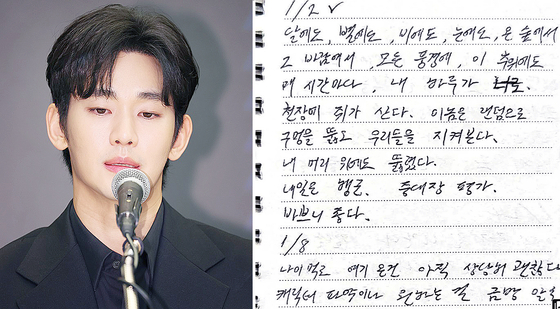 1/2
달에도, 별에도, 비에도, 눈에도, 온 숲에서
그 바람에서, 모든 풍경에, 이 추위에도
매 시간마다, 내 하루가 너로.
천장에 쥐가 산다. 이놈은 랜덤으로
구멍을 뚫고 우리들을 지켜본다.
내 머리 위에도 뚫렸다.
내일은 행군. 중대장 평가.
바쁘니 좋다.
1/8
나이 먹고 여기 온건 아직 상당히 괜찮다
캐릭터 파악이나 원하는 걸 금방 알